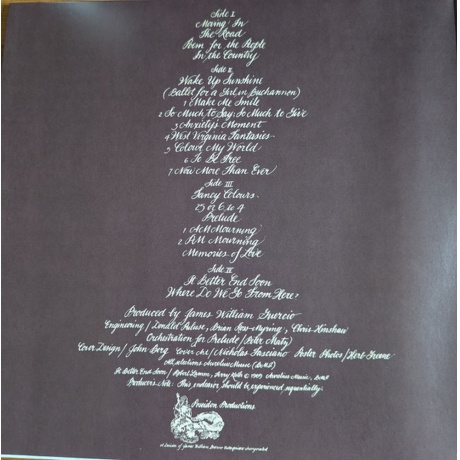 Side I
Moving In
The Road
Poem for the People
In the Country
Side II
Wake Up Sunshine
(Ballet for a Girl in Buchannon)
1 Make Me Smile
2 So Much to Say, So Much to Give
3 Anxiety's Moment
4 West Virginia Fantasies
5 Colour My World
6 To Be Free
7 Now More Than Ever
Side III
Fancy Colours
25 or 6 to 4
Prelude
1 AM Mourning
2 PM Mourning
Memories of Love
Side IV
It Better End Soon
Where Do We Go From Here?
Produced by James William Guercio
Engineering / Donald Puluse, Brian Ross-Myring, Chris Hinshaw
Orchestration for Prelude (Peter Matz)
Cover Design / John Berg Cover Art / Nicholas Fasciano Poster Photos / Herb Greene
All selections Aurelius Music (BMI)
It Better End Soon / Robert Lamm, Terry Kath © 1969 Aurelius Music, BMI
Producer's Note: This endeavor should be experienced sequentially.
Poseidon Productions
A Division of James William Guercio Enterprises Incorporated